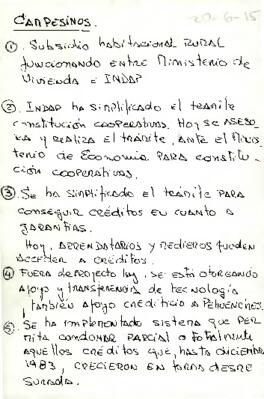 CAMPESINOS.
27-6-15
① Subsidio habitacional RURAL
funcionando entre Ministerio de
Vivienda e INDAP
② INDAP ha simplificado el trámite
constitución cooperativas. Hoy se ASESO-
RA y REALIZA el trámite, ante el Minis-
terio de Economía PARA constitu-
ción cooperativas.
③ Se ha simplificado el trámite PARA
conseguir créditos en cuanto a
garantías.
Hoy, ARRENDATARIOS y medieros pueden
acceder a créditos.
④ Fuera de proyecto ley, se está otorgando
apoyo y transferencia de tecnología
y también apoyo crediticio a Pehuenches.
⑤ Se ha implementado sistema que PER
mita condonar parcial o totalmente
aquellos créditos que, hasta diciembre
1983, crecieron en forma desme
surada.